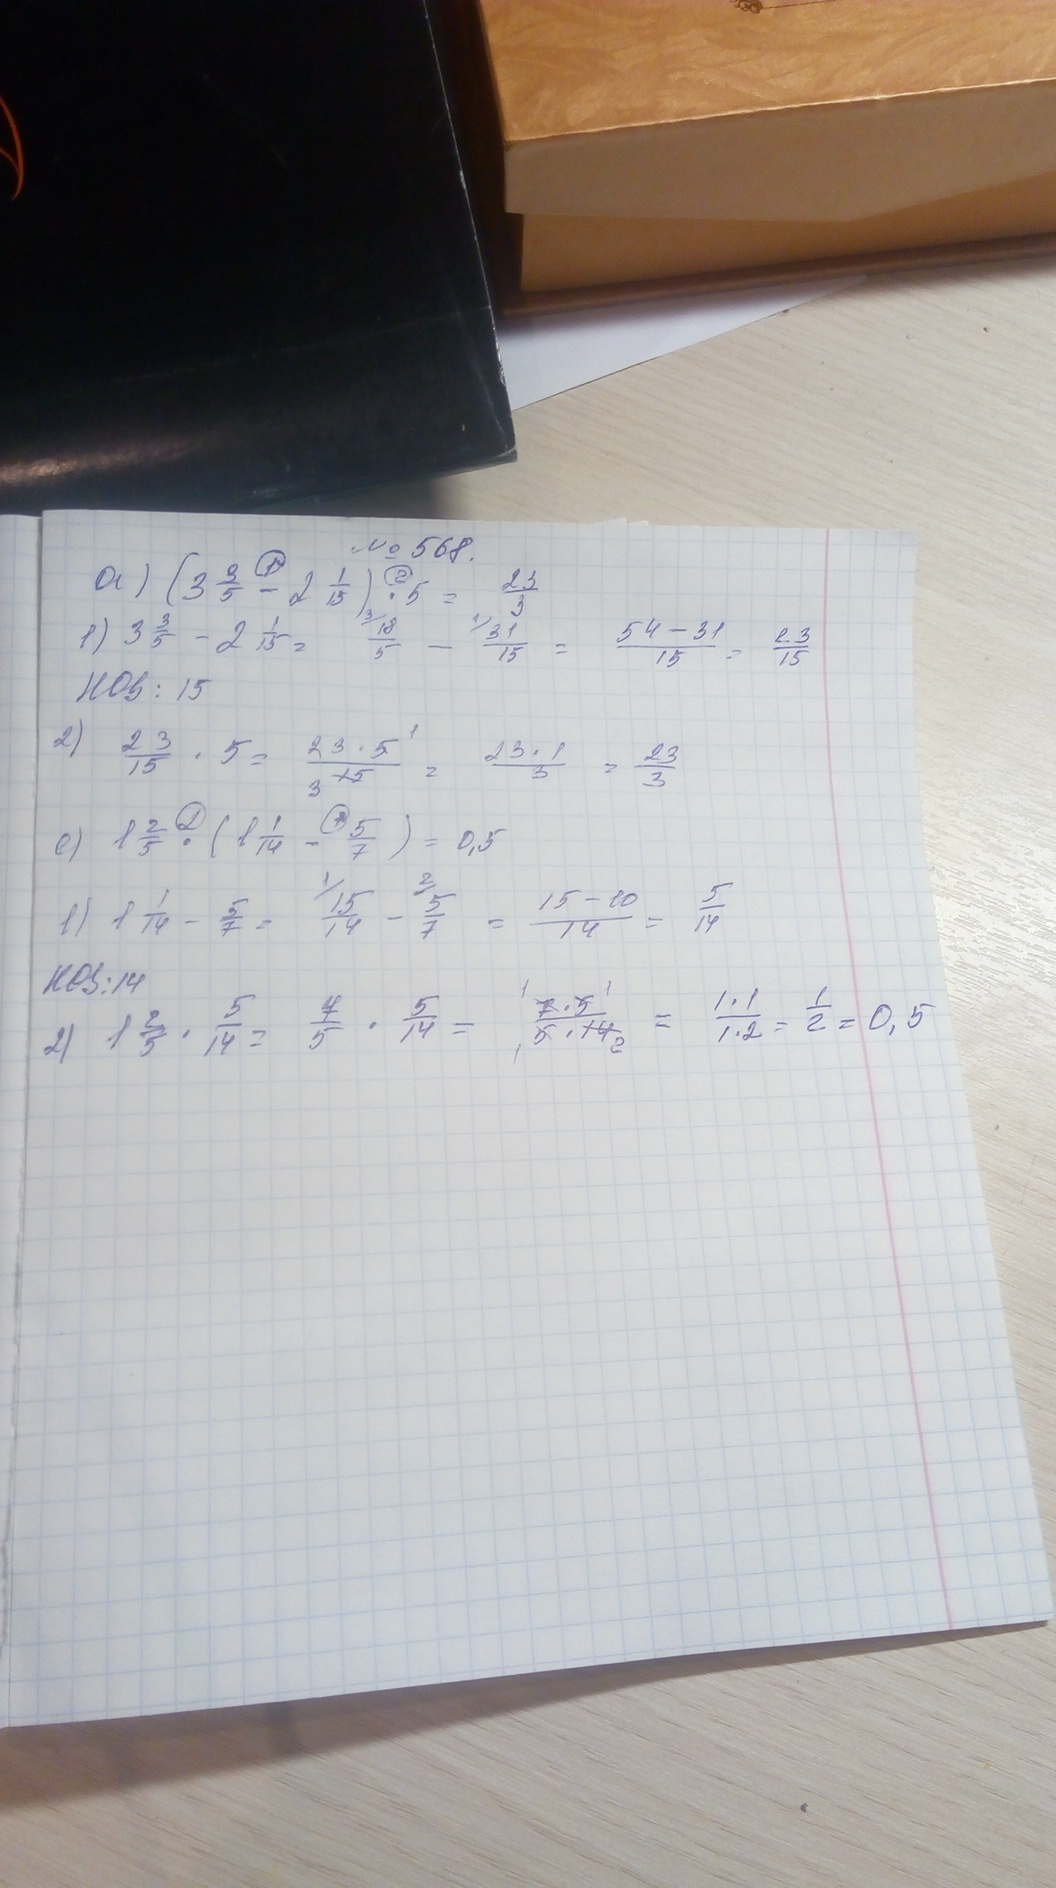 № 568.
а) (3 3/5 - 2 1/15) · 5 = 23/3
1) 3 3/5 - 2 1/15 = 18/5 - 31/15 = (54 - 31)/15 = 23/15
НОЗ: 15
2) 23/15 · 5 = (23 · 5)/15 = (23 · 1)/3 = 23/3
с) 1 2/5 · (1 1/14 - 5/7) = 0,5
1) 1 1/14 - 5/7 = 15/14 - 5/7 = (15 - 10)/14 = 5/14
НОЗ: 14
2) 1 2/5 · 5/14 = 7/5 · 5/14 = (7 · 5)/(5 · 14) = (1 · 1)/(1 · 2) = 1/2 = 0,5